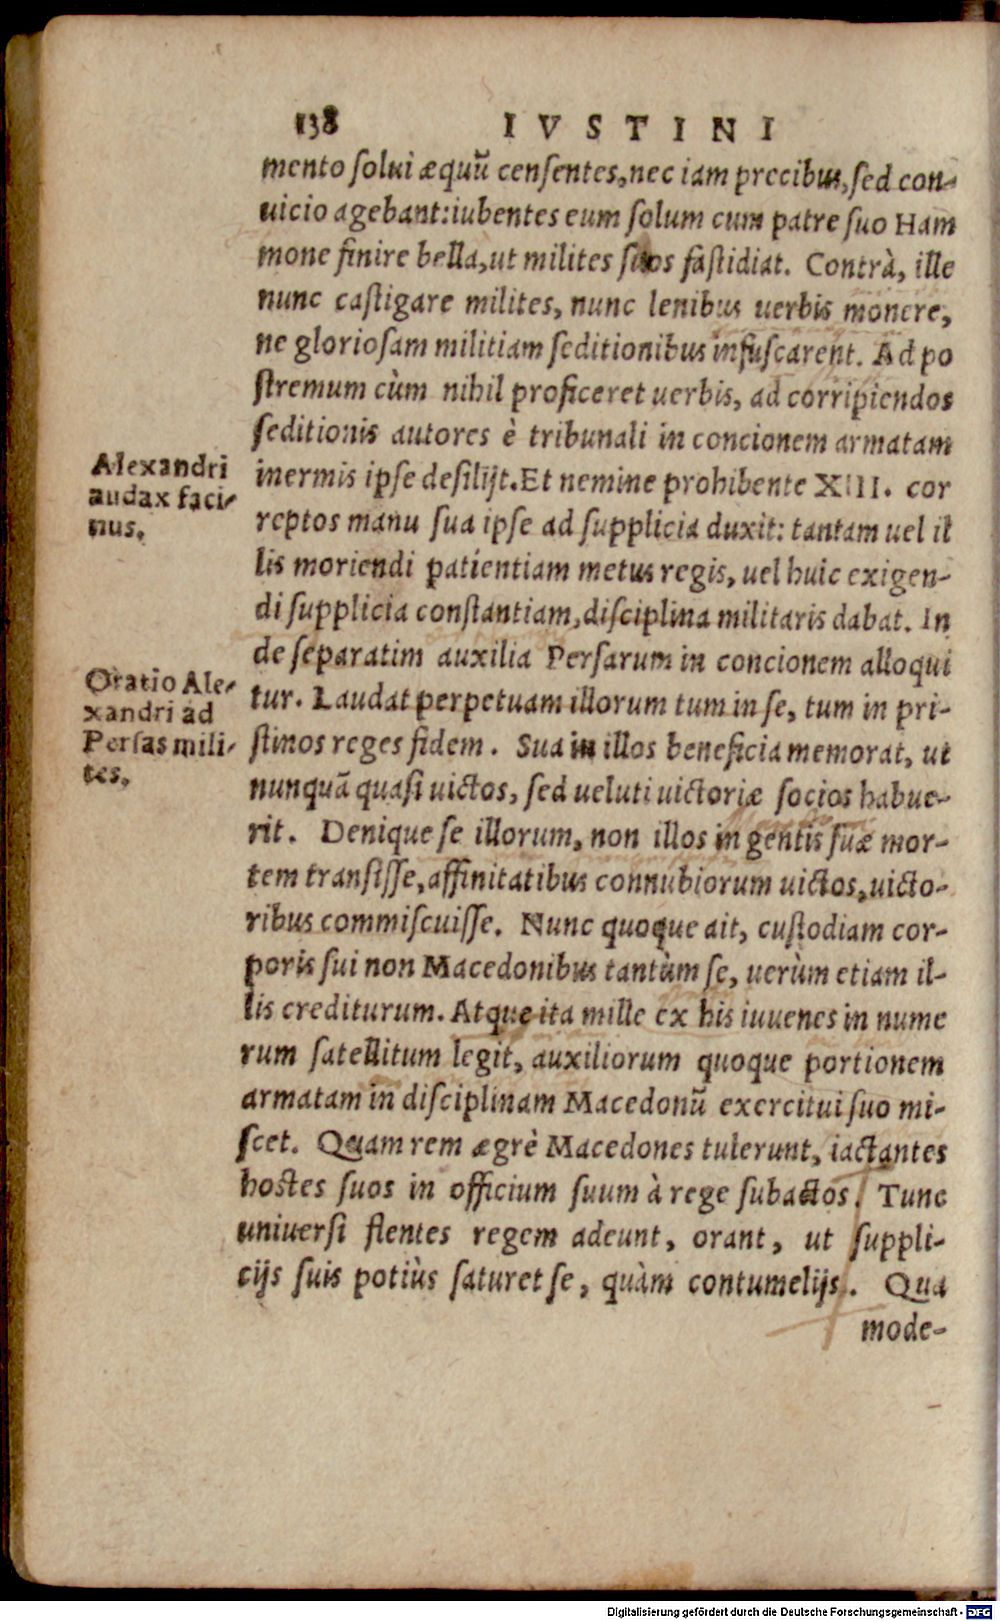 138 IVSTINI
mento solui æquũ censentes, nec iam precibus, sed con-
uicio agebant: iubentes eum solum cum patre suo Ham
mone finire bella, ut milites suos fastidiat. Contrà, ille
nunc castigare milites, nunc lenibus uerbis monere,
ne gloriosam militiam seditionibus infuscarent. Ad po
stremum cùm nihil proficeret uerbis, ad corripiendos
seditionis autores è tribunali in concionem armatam
inermis ipse desilijt. Et nemine prohibente XIII. cor
reptos manu sua ipse ad supplicia duxit: tantam uel il
lis moriendi patientiam metus regis, uel huic exigen-
di supplicia constantiam, disciplina militaris dabat. In
de separatim auxilia Persarum in concionem alloqui
tur. Laudat perpetuam illorum tum in se, tum in pri-
stinos reges fidem. Sua in illos beneficia memorat, ut
nunquã quasi uictos, sed ueluti uictoriæ socios habue-
rit. Denique se illorum, non illos in gentis suæ mor-
tem transisse, affinitatibus connubiorum uictos, uicto-
ribus commiscuisse. Nunc quoque ait, custodiam cor-
poris sui non Macedonibus tantùm se, uerùm etiam il-
lis crediturum. Atque ita mille ex his iuuenes in nume
rum satellitum legit, auxiliorum quoque portionem
armatam in disciplinam Macedonũ exercitui suo mi-
scet. Quam rem ægrè Macedones tulerunt, iactantes
hostes suos in officium suum à rege subactos. Tunc
uniuersi flentes regem adeunt, orant, ut suppli-
cijs suis potiùs saturet se, quàm contumelijs. Qua
mode-
Alexandri
audax faci-
nus.
Oratio Ale-
xandri ad
Persas mili-
tes.
Digitalisierung gefördert durch die Deutsche Forschungsgemeinschaft - DFG